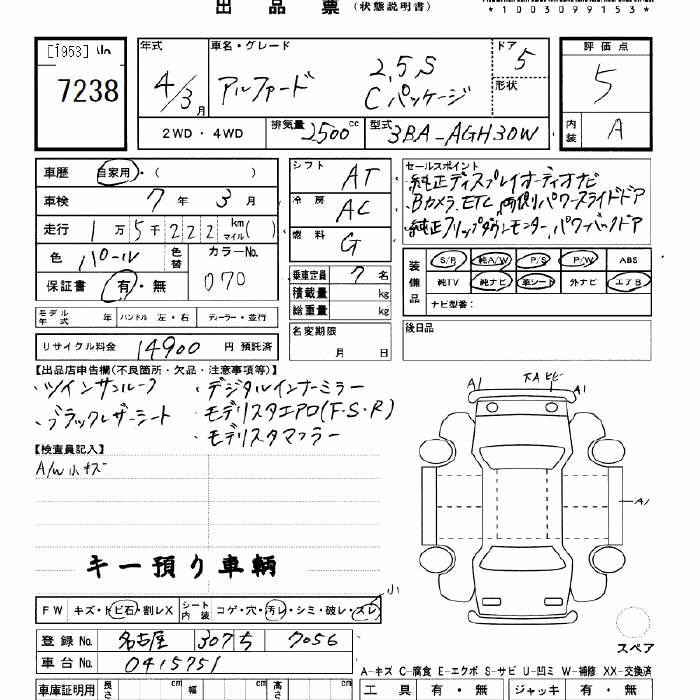 出品票（状態説明書）
*1003099153*
[1953] 1h
7238
年式 4/3月
車名・グレード アルファード 2,5S Cパッケージ
ドア 5
形状
評価点 5
内装 A
2WD・4WD 排気量 2500cc 型式 3BA-AGH30W
車歴 自家用・( )
車検 7年 3月
走行 1万5千222 km マイル( )
色 パール 色替 カラーNo. 070
保証書 有・無
モデル年式 年 ハンドル 左・右 ディーラー・並行
リサイクル料金 14900 円 預託済
シフト AT
冷房 AC
燃料 G
乗車定員 7名
積載量 kg
総重量 kg
名変期限
月 日
セールスポイント
・純正ディスプレイオーディオナビ
・Bカメラ、ETC、両側パワースライドドア
・純正フリップダウンモニター、パワーバックドア
装備品 S/R 純A/W P/S P/W ABS
純TV 純ナビ 革シート 外ナビ エアB
ナビ型番：
後日品
【出品店申告欄(不良箇所・欠品・注意事項等)】
・ツインサンルーフ ・デジタルインナーミラー
・ブラックレザーシート ・モデリスタエアロ(F・S・R)
・モデリスタマフラー
【検査員記入】
A/W小キズ
キー預り車輌
A1 大Aヒビ A1
A1
小
スペア
FW キズ・トビ石・割レX シート内装 コゲ・穴・汚レ・シミ・破レ・スレ
登録No. 名古屋 307 ち 7056
車台No. 0415751
A-キズ C-腐食 E-エクボ S-サビ U-凹ミ W-補修 XX-交換済
車庫証明用 長さ cm 幅 cm 高さ cm
工具 有・無 ジャッキ 有・無